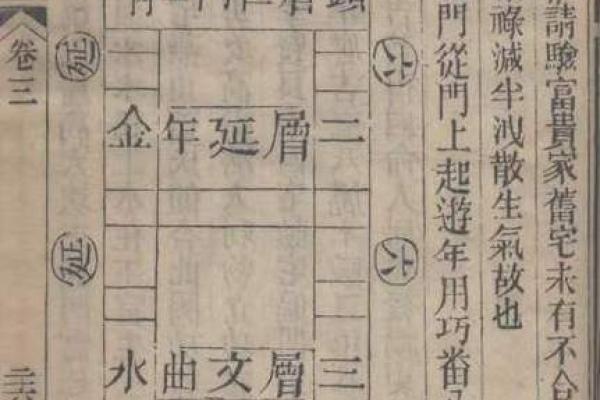 請驗富貴家舊宅未有不合
祿減半洩散生氣故也
門從門上起遊年用巧番
六
六
二層延年金
三層文曲水
延
延
卷三